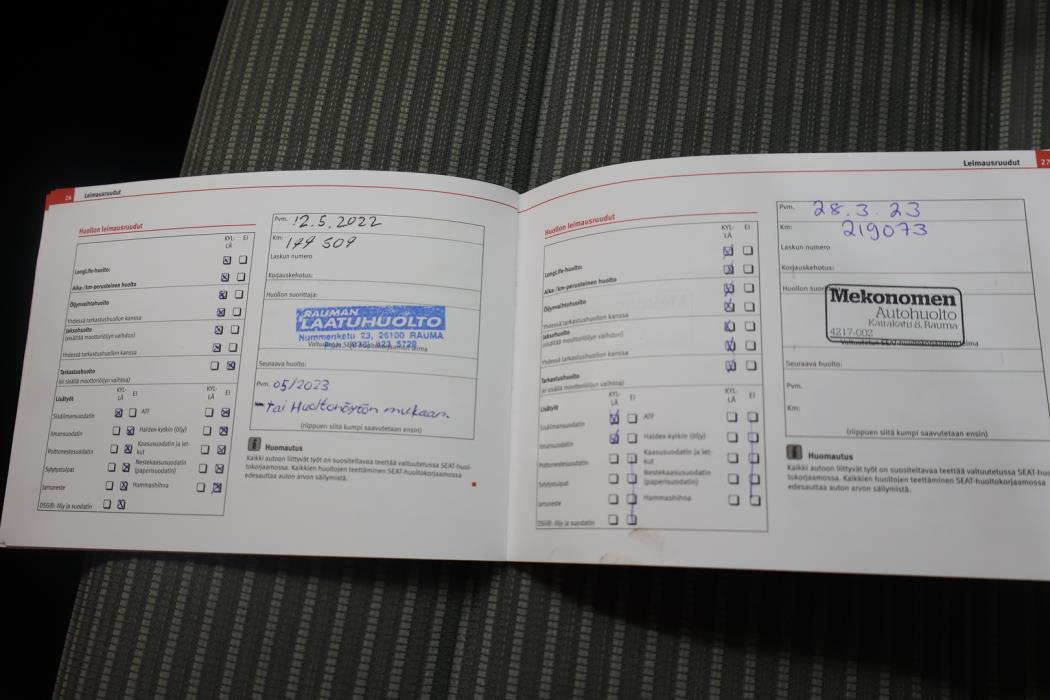 26 Leimausruudut
Huollon leimausruudut
KYL-
LÄ
EI
LongLife-huolto:
Aika-/km-perusteinen huolto
Öljynvaihtohuolto
Yhdessä tarkastushuollon kanssa
Jaksohuolto
(sisältää moottoriöljyn vaihdon)
Yhdessä tarkastushuollon kanssa
Tarkastushuolto
(ei sisällä moottoriöljyn vaihtoa)
Lisätyöt
KYL-
LÄ
EI
KYL-
LÄ
EI
Sisäilmansuodatin
ATF
Ilmansuodatin
Haldex-kytkin (öljy)
Polttonestesuodatin
Kaasusuodatin ja let-
kut
Sytytystulpat
Nestekaasusuodatin
(paperisuodatin)
Jarruneste
Hammashihna
DSG®: öljy ja suodatin
Pvm. 12.5.2022
Km: 199 509
Laskun numero
Korjauskehotus:
Huollon suorittaja:
RAUMAN
LAATUHUOLTO
Nummenkatu 23, 26100 RAUMA
Seuraava huolto:
Pvm. 05/2023
- tai Huoltonäytön mukaan.
(riippuen siitä kumpi saavutetaan ensin)
Huomautus
Kaikki autoon liittyvät työt on suositeltavaa teettää valtuutetussa SEAT-huol-
tokorjaamossa. Kaikkien huoltojen teettäminen SEAT-huoltokorjaamossa
edesauttaa auton arvon säilymistä.
Leimausruudut 27
Huollon leimausruudut
KYL-
LÄ
EI
LongLife-huolto:
Aika-/km-perusteinen huolto
Öljynvaihtohuolto
Yhdessä tarkastushuollon kanssa
Jaksohuolto
(sisältää moottoriöljyn vaihdon)
Yhdessä tarkastushuollon kanssa
Tarkastushuolto
(ei sisällä moottoriöljyn vaihtoa)
Lisätyöt
KYL-
LÄ
EI
KYL-
LÄ
EI
Sisäilmansuodatin
ATF
Ilmansuodatin
Haldex-kytkin (öljy)
Polttonestesuodatin
Kaasusuodatin ja let-
kut
Sytytystulpat
Nestekaasusuodatin
(paperisuodatin)
Jarruneste
Hammashihna
DSG®: öljy ja suodatin
Pvm. 28.3.23
Km: 219073
Laskun numero
Korjauskehotus:
Huollon suor
Mekonomen
Autohuolto
Kairakatu 8, Rauma
4217-002
Valtuutetun SEAT-huoltokorjaamon leima
Seuraava huolto:
Pvm.
Km:
(riippuen siitä kumpi saavutetaan ensin)
Huomautus
Kaikki autoon liittyvät työt on suositeltavaa teettää valtuutetussa SEAT-huol-
tokorjaamossa. Kaikkien huoltojen teettäminen SEAT-huoltokorjaamossa
edesauttaa auton arvon säilymistä.